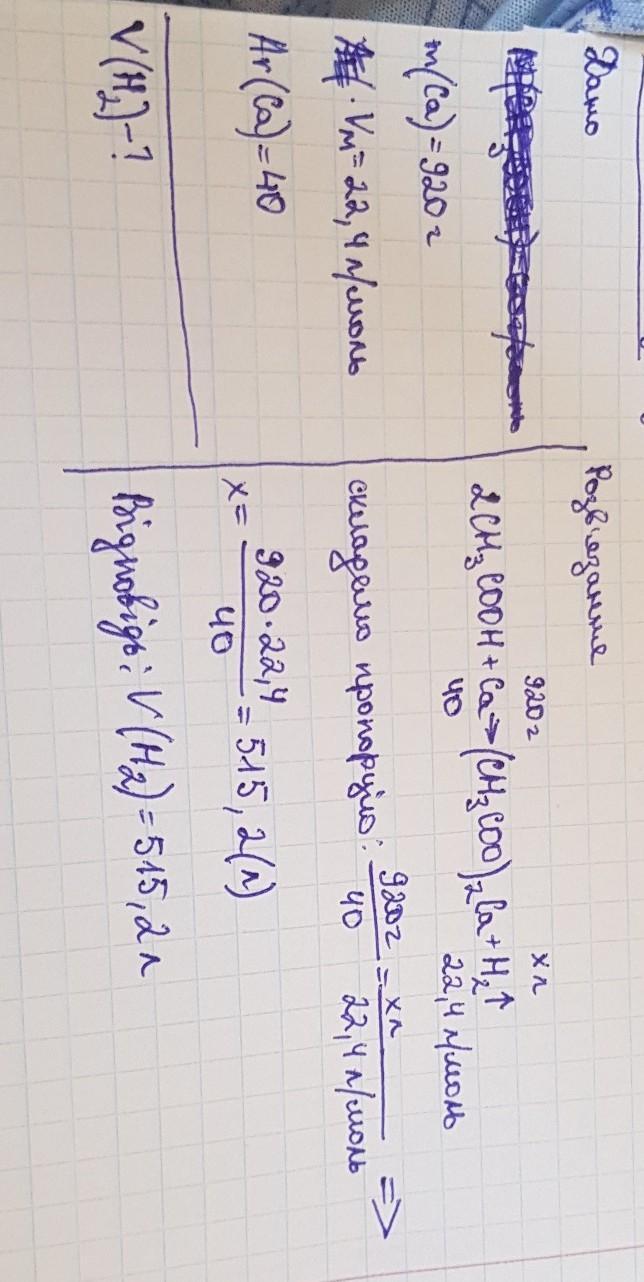 Дано
m(Ca)=920г
Vм=22,4 л/моль
Ar(Ca)=40
V(H₂)-?
Розв'язання
920г
x л
2CH₃COOH+Ca→(CH₃COO)₂Ca+H₂↑
40
22,4 л/моль
складемо пропорцію: 920г/40 = x л/22,4 л/моль ⇒
x = 920·22,4/40 = 515,2(л)
Відповідь: V(H₂)=515,2 л